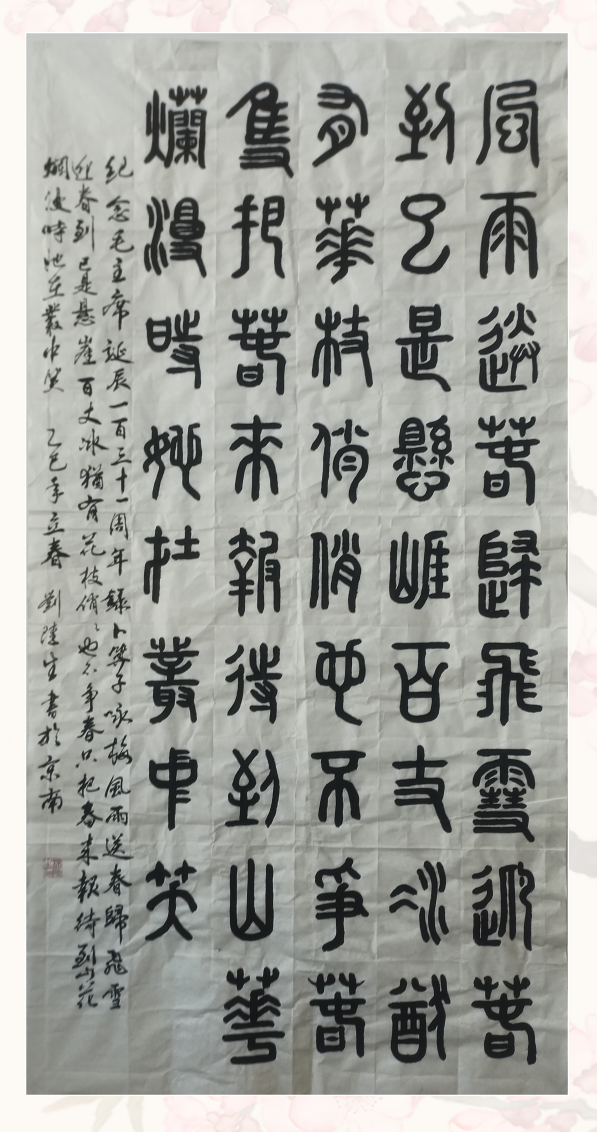 風雨送春歸飛雪迎春
到已是懸崖百丈冰猶
有華枝俏俏也不爭春
隻把春來報待到山華
爛漫時她在叢中笑
紀念毛主席誕辰一百三十一周年錄卜算子咏梅風雨送春歸飛雪
迎春到已是懸崖百丈冰猶有花枝俏々也不爭春只把春来報待到山花
爛漫時她在叢中笑 乙巳年立春 劉陸生書於京南